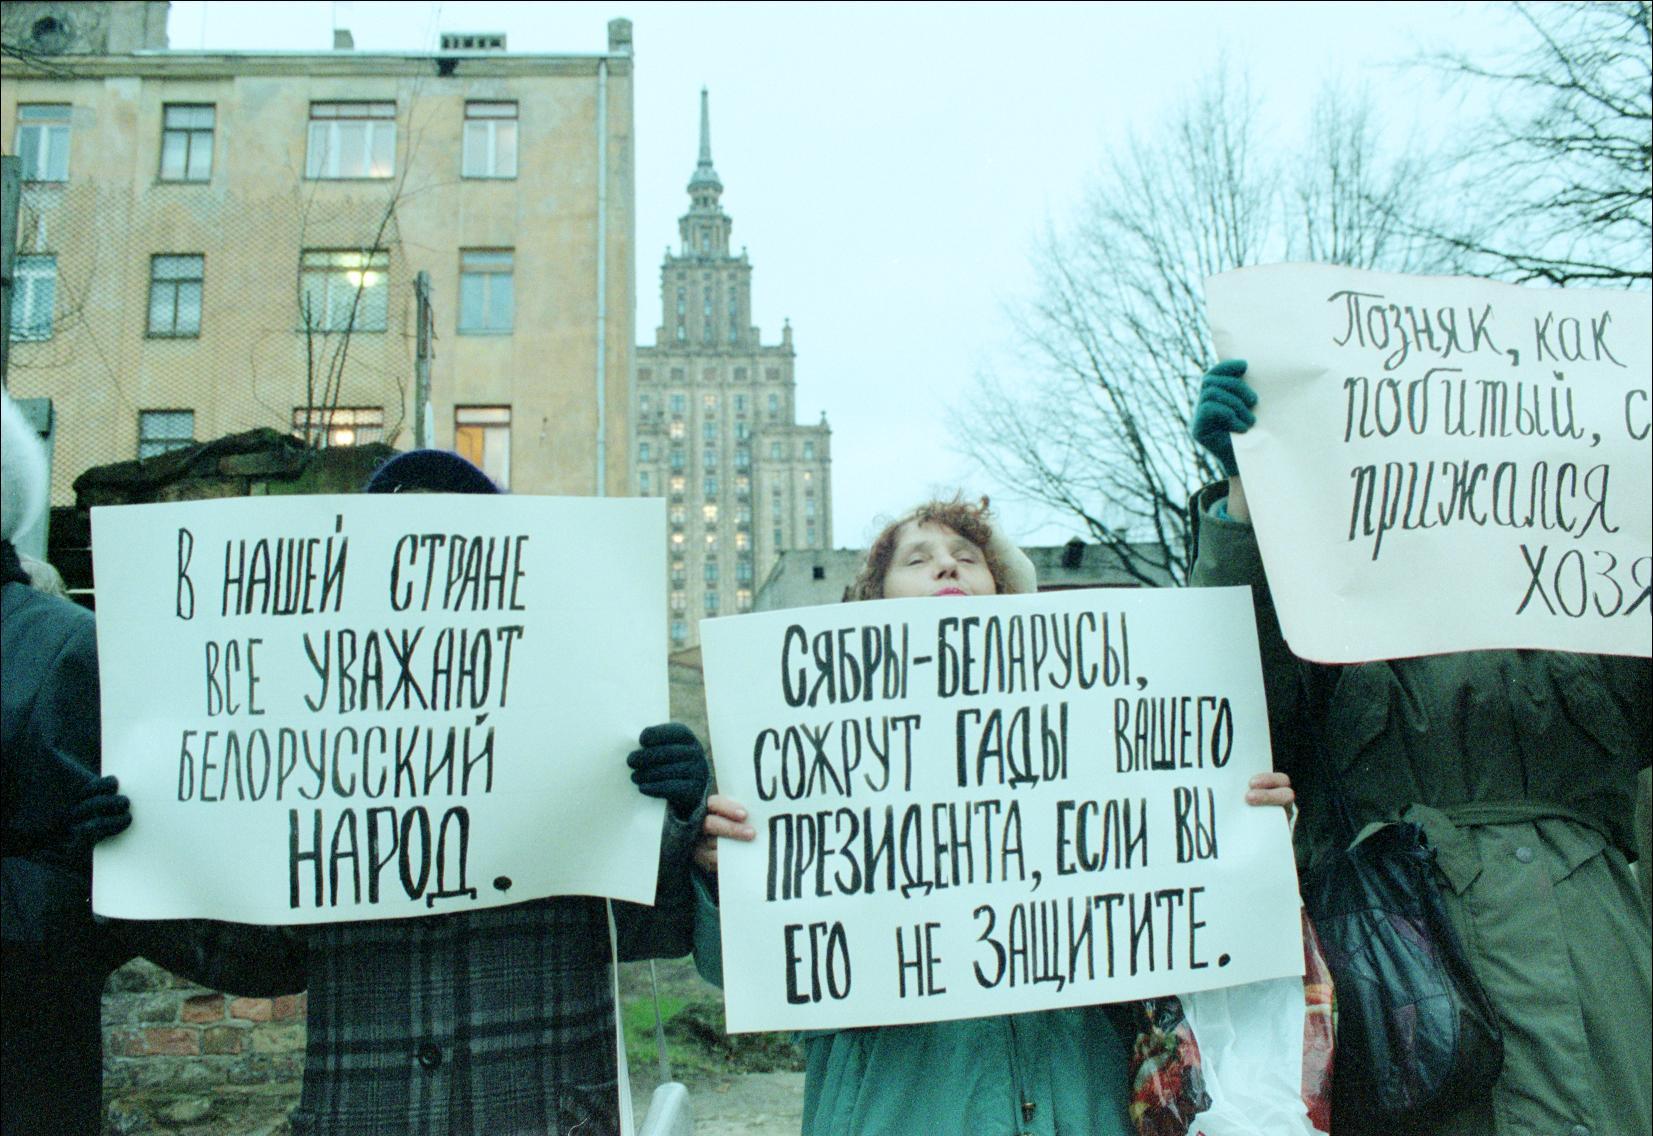 В НАШЕЙ СТРАНЕ
ВСЕ УВАЖАЮТ
БЕЛОРУССКИЙ
НАРОД.
СЯБРЫ-БЕЛАРУСЫ,
СОЖРУТ ГАДЫ ВАШЕГО
ПРЕЗИДЕНТА, ЕСЛИ ВЫ
ЕГО НЕ ЗАЩИТИТЕ.
Позняк, как
побитый,
прижался